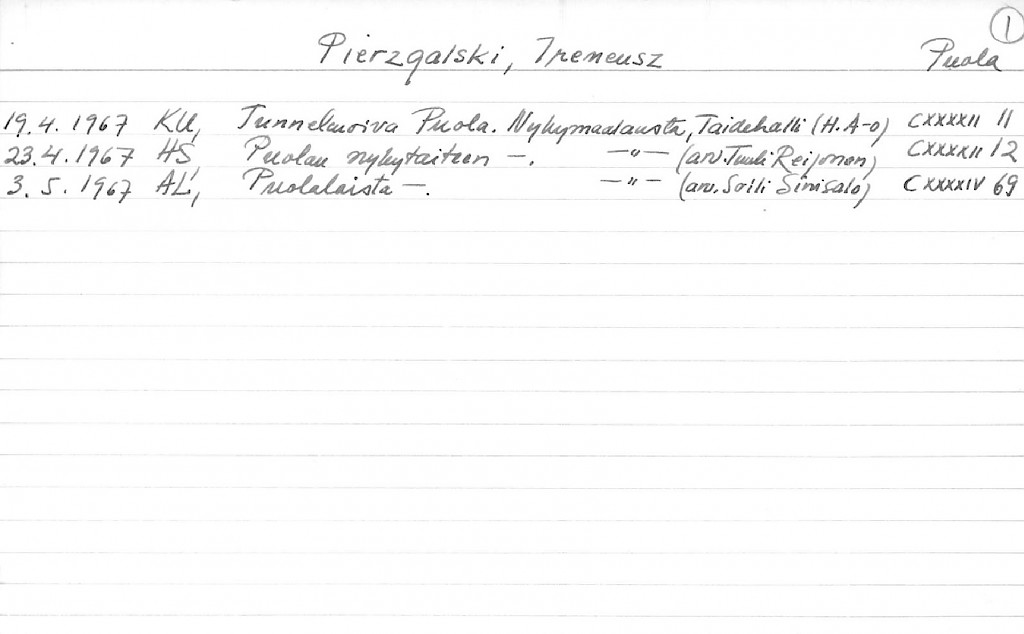 1
Pierzgalski, Ireneusz Puola
19.4.1967 KU, Tunnelmoiva Puola. Nykymaalausta, Taidehalli (H.A-o) CXXXXII 11
23.4.1967 HS, Puolan nykytaiteen —. —"— (arv. Tuuli Reijonen) CXXXXII 12
3.5.1967 AL, Puolalaista —. —"— (arv. Soili Sinisalo) CXXXXIV 69